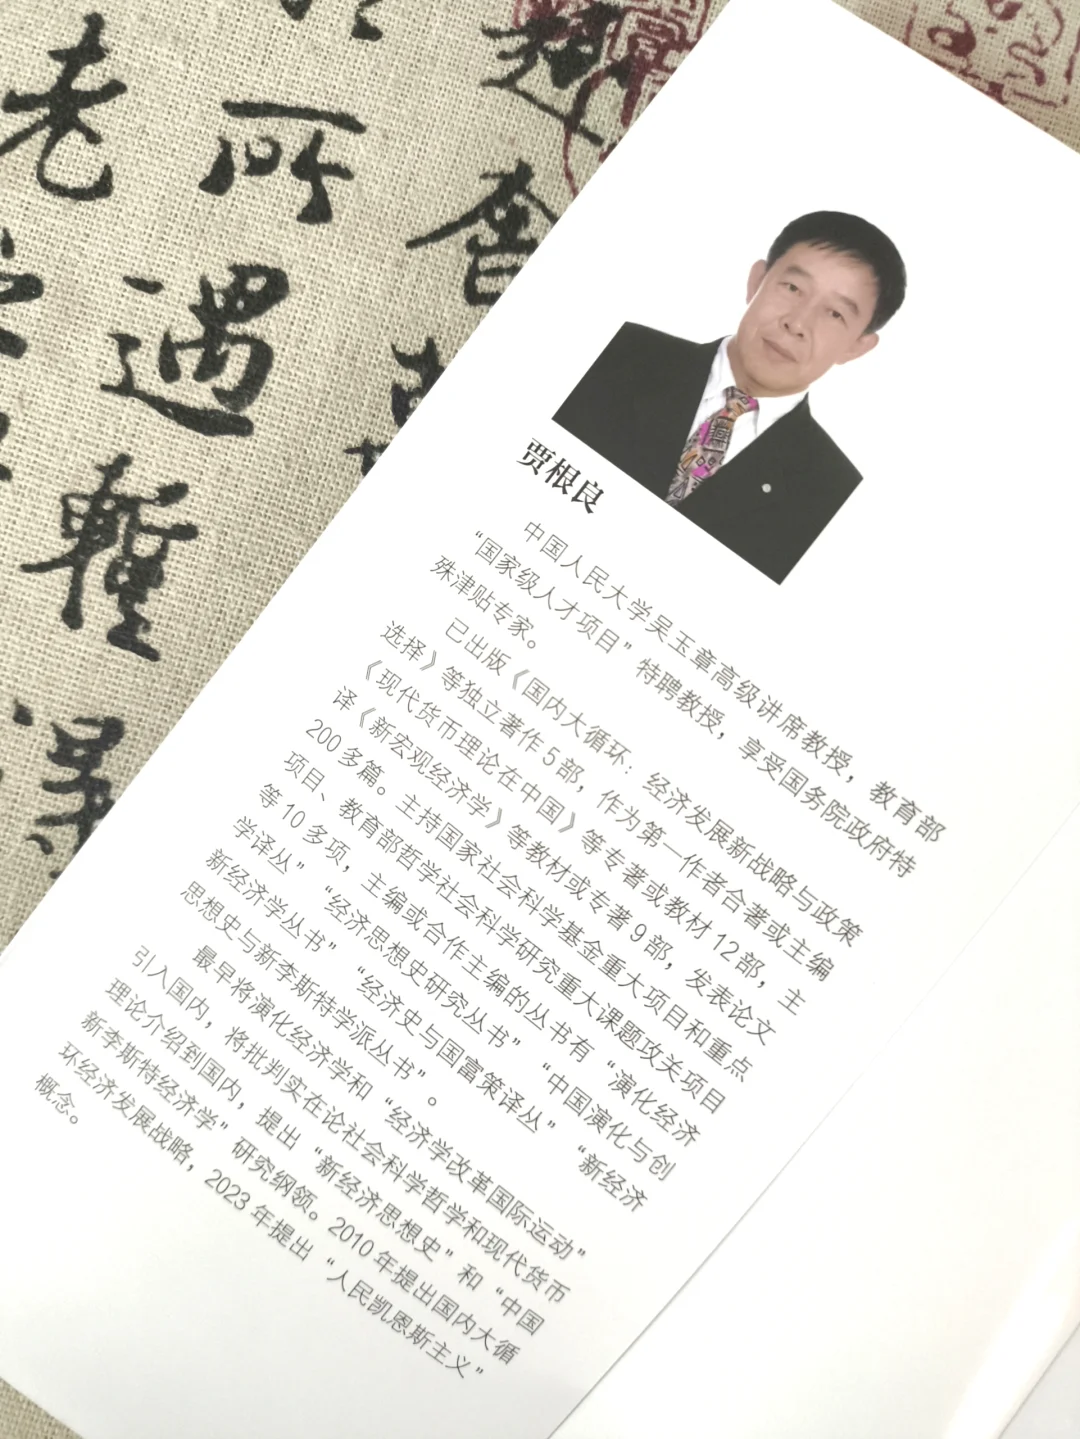 老
所
遇
暫
贾根良
中国人民大学吴玉章高级讲席教授，教育部
“国家级人才项目”特聘教授，享受国务院政府特
殊津贴专家。
已出版《国内大循环：经济发展新战略与政策
选择》等独立著作5部，作为第一作者合著或主编
《现代货币理论在中国》等专著或教材12部，主
译《新宏观经济学》等教材或专著9部，发表论文
200多篇。主持国家社会科学基金重大项目和重点
项目、教育部哲学社会科学研究重大课题攻关项目
等10多项，主编或合作主编的丛书有“演化经济
学译丛”“经济思想史研究丛书”“中国演化与创
新经济学丛书”“经济史与国富策译丛”“新经济
思想史与新李斯特学派丛书”。
最早将演化经济学和“经济学改革国际运动”
引入国内，将批判实在论社会科学哲学和现代货币
理论介绍到国内，提出“新经济思想史”和“中国
新李斯特经济学”研究纲领。2010年提出国内大循
环经济发展战略，2023年提出“人民凯恩斯主义”
概念。